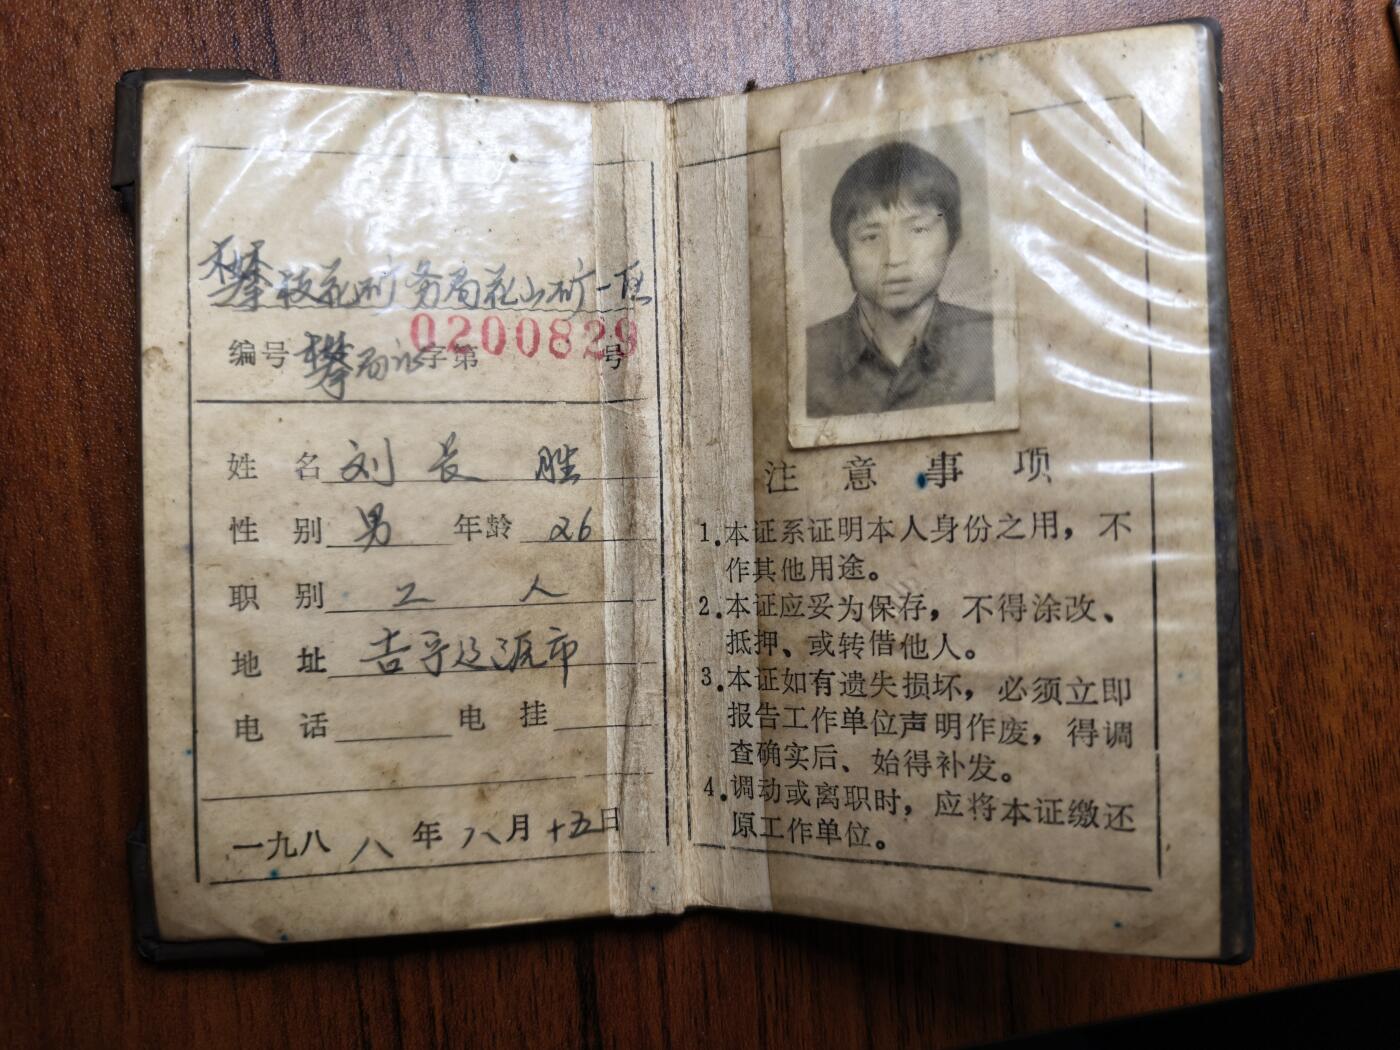 攀枝花矿务局花山矿一区
编号攀局证字第0200829号
姓 名 刘长胜
性 别 男 年龄 26
职 别 工人
地 址 吉林辽源市
电 话 电 挂
一九八八年八月十五日
注意事项
1.本证系证明本人身份之用，不
作其他用途。
2.本证应妥为保存，不得涂改、
抵押、或转借他人。
3.本证如有遗失损坏，必须立即
报告工作单位声明作废，得调
查确实后、始得补发。
4.调动或离职时，应将本证缴还
原工作单位。